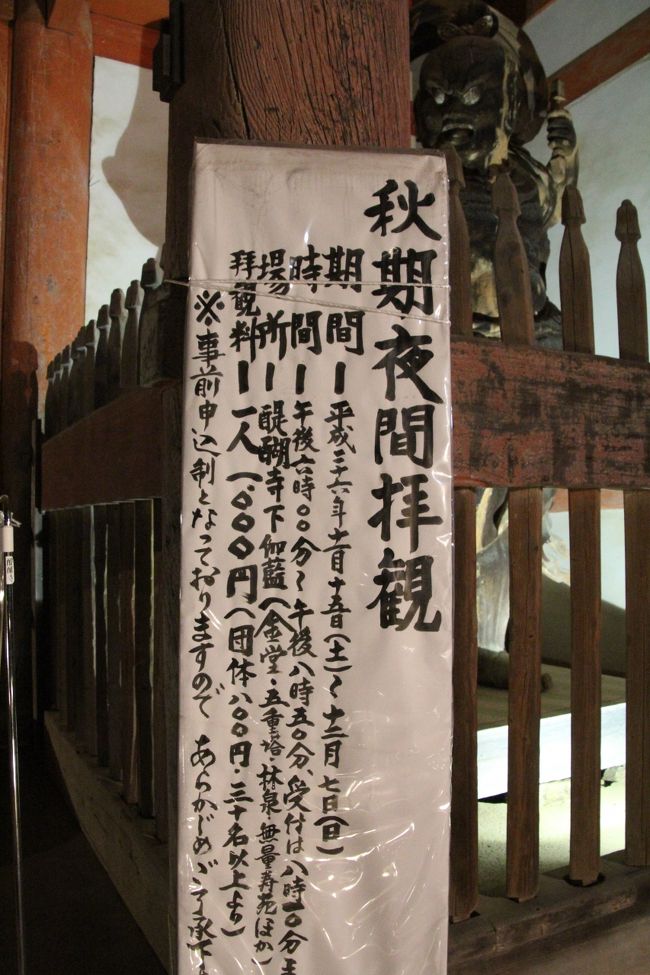 秋期夜間拝観
期間ー平成二十六年十一月十五日(土)〜十二月七日(日)
時間ー午後六時〇〇分〜午後八時五〇分、受付は八時一〇分ま
場所ー醍醐寺下伽藍(金堂・五重塔・林泉・無量寿苑ほか)
拝観料ー一人一、〇〇〇円(団体八〇〇円・二十名以上より)
※事前申込制となっておりますので あらかじめ ご了承下さ